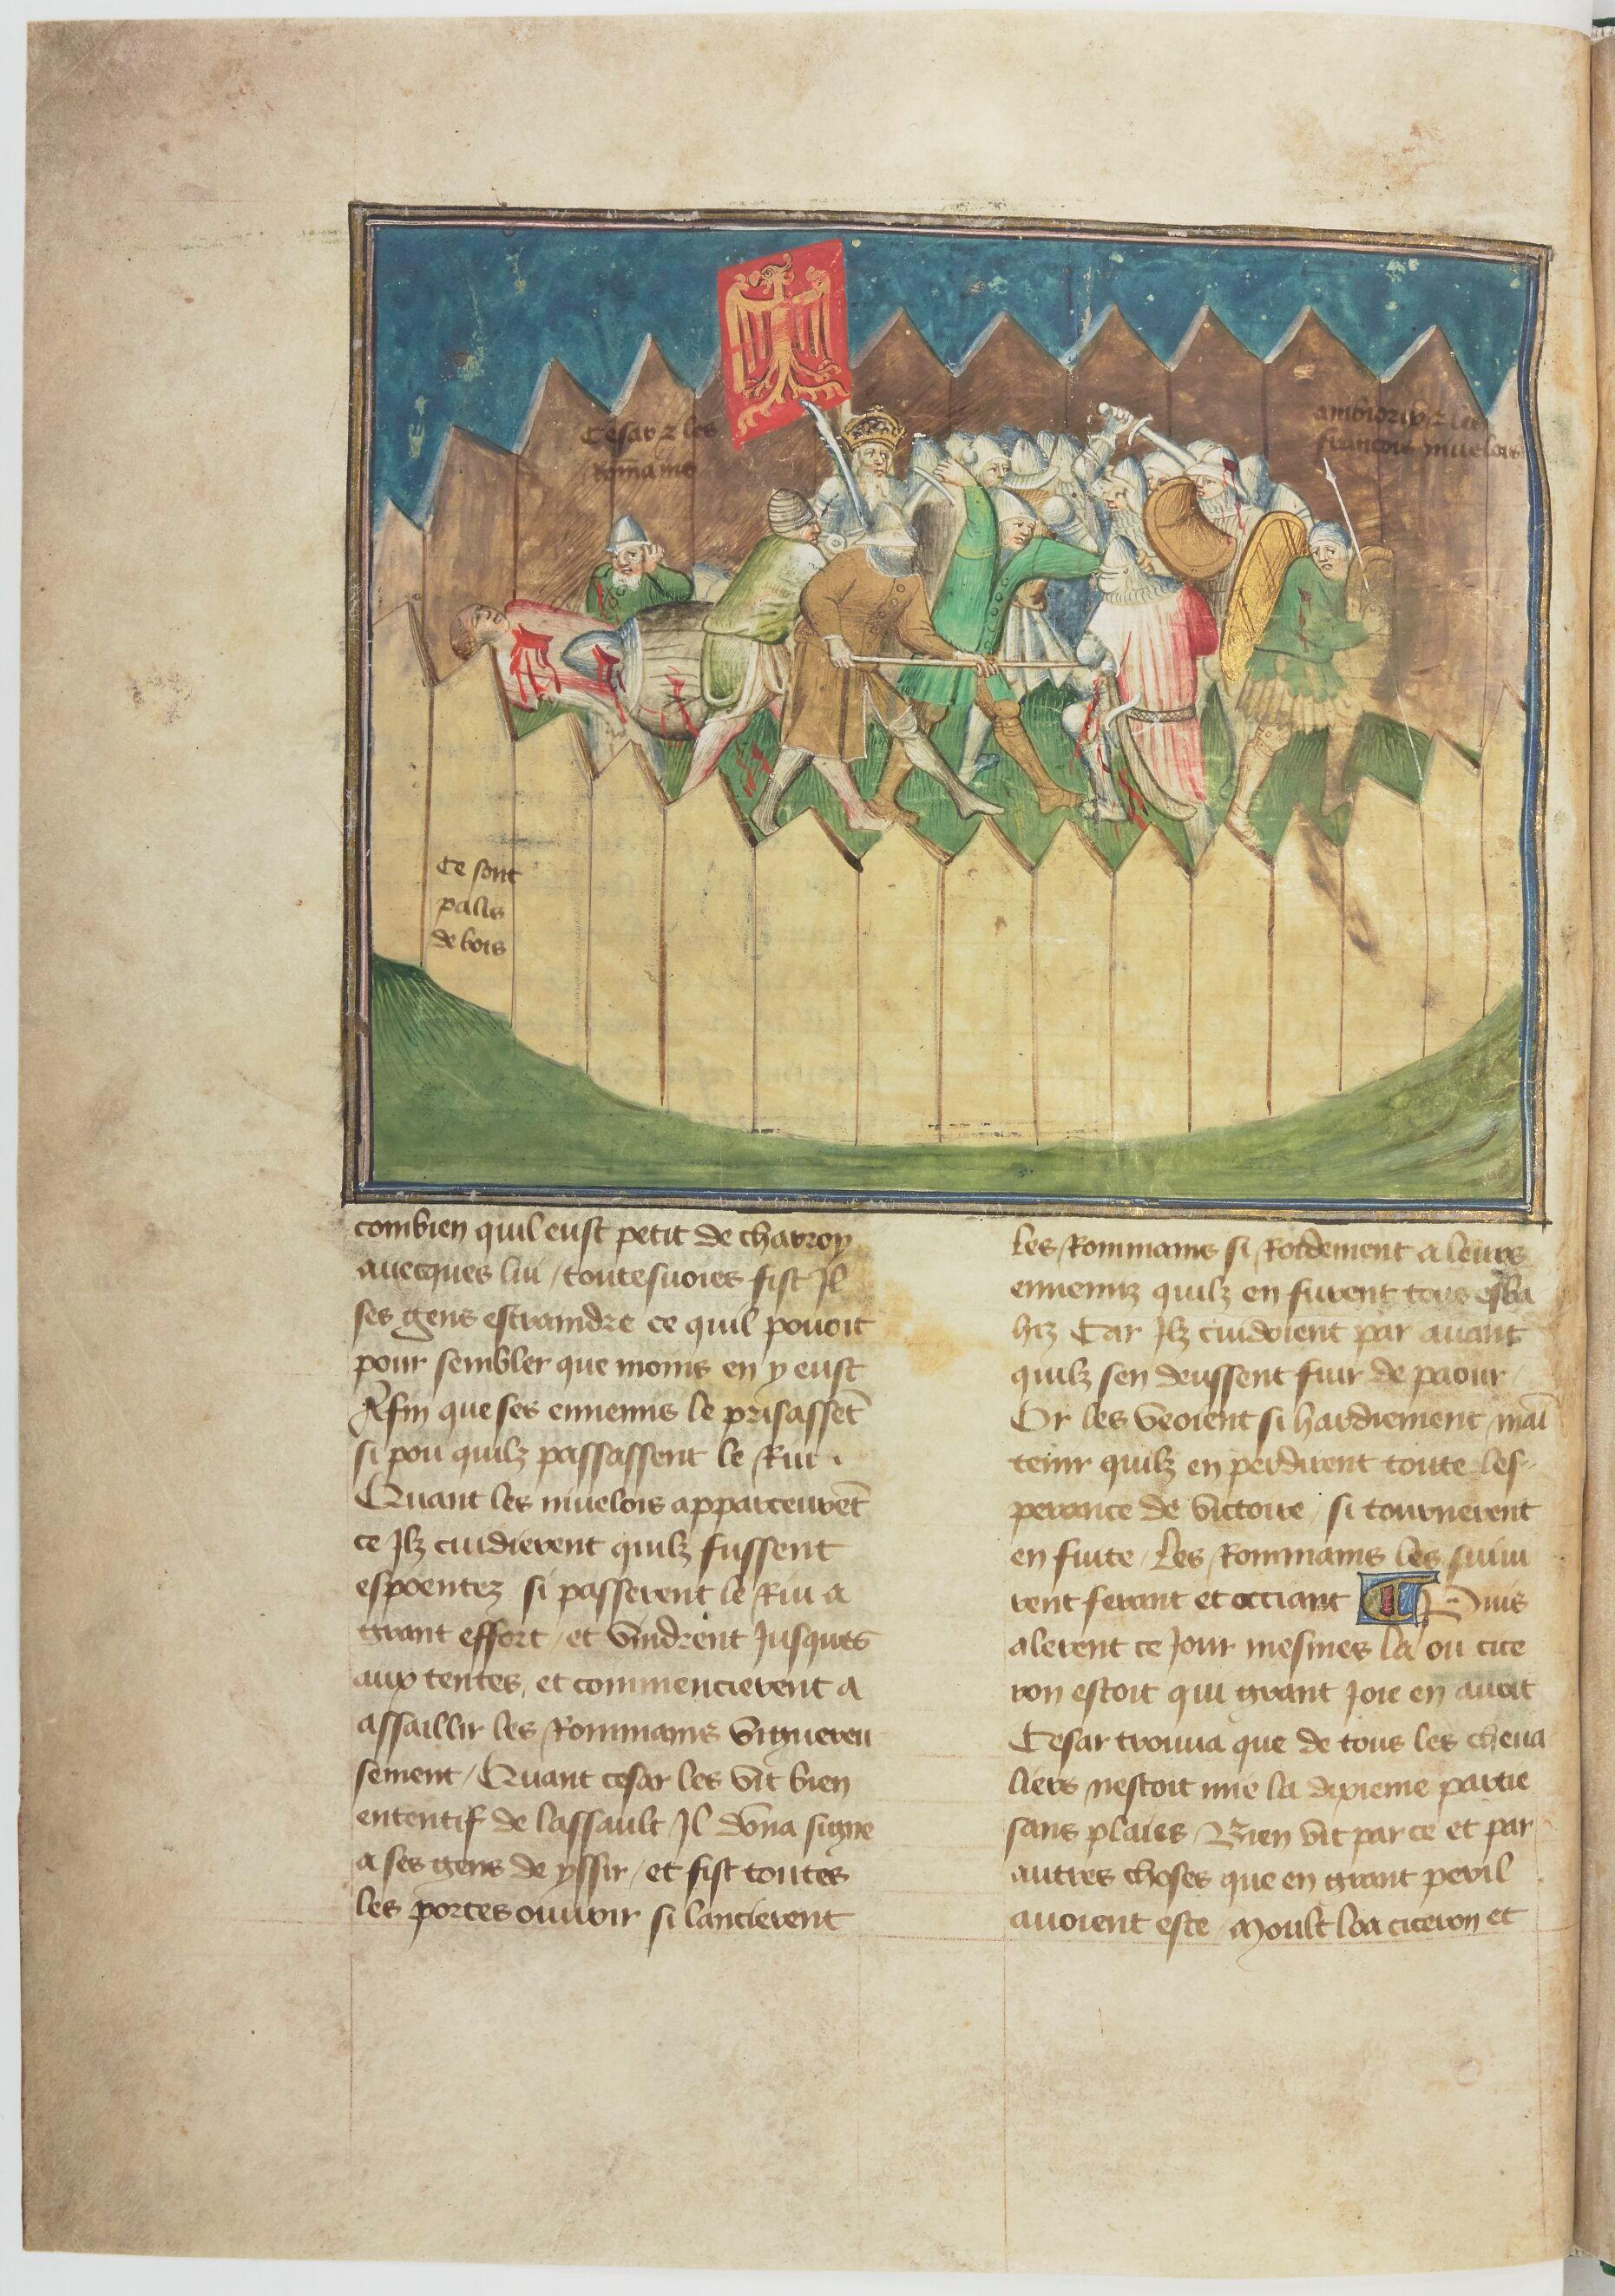 Cesar et les
romains
ambiorix et les
francois nivelois
Ce sont
palis
de bois
combien quil eust petit de charroy
avecques lui / toutesvoies fist Il
ses gens estraindre ce quil povoit
pour sembler que moins en y eust
Affin que ses ennemis le prisassēt
si pou quilz passassent le Riu .
Quant les nivelois apparceurēt
ce Ilz cuidierent quilz fussent
espoentez si passerent le Riu a
grant effort / et vindrent Jusques
aux tentes, et commencierent a
assaillir les Rommains viguereu
sement / Quant cesar les vit bien
ententif de lassault / Il dōna signe
a ses gens de yssir / et fist toutes
les portes ouvrir si lancierent
Les Rommains si Roidement a leurs
ennemiz quilz en furent tous esba
hiz Car Ilz cuidoient par avant
quilz sen deussent fuir de paour /
Or les veoient si hardiement mai
tenir quilz en perdirent toute les-
perance de victoire / si tournerent
en fuite / Les Rommains les suivi
rent ferant et occiant Puis
alerent ce Jour mesmes la ou cice
ron estoit qui grant Joie en avoit
Cesar trouva que de tous les cheva
liers nestoit mie la dixieme partie
sans plaies / Bien vit par ce et par
autres choses que en grant peril
avoient este / Moult loa ciceron et